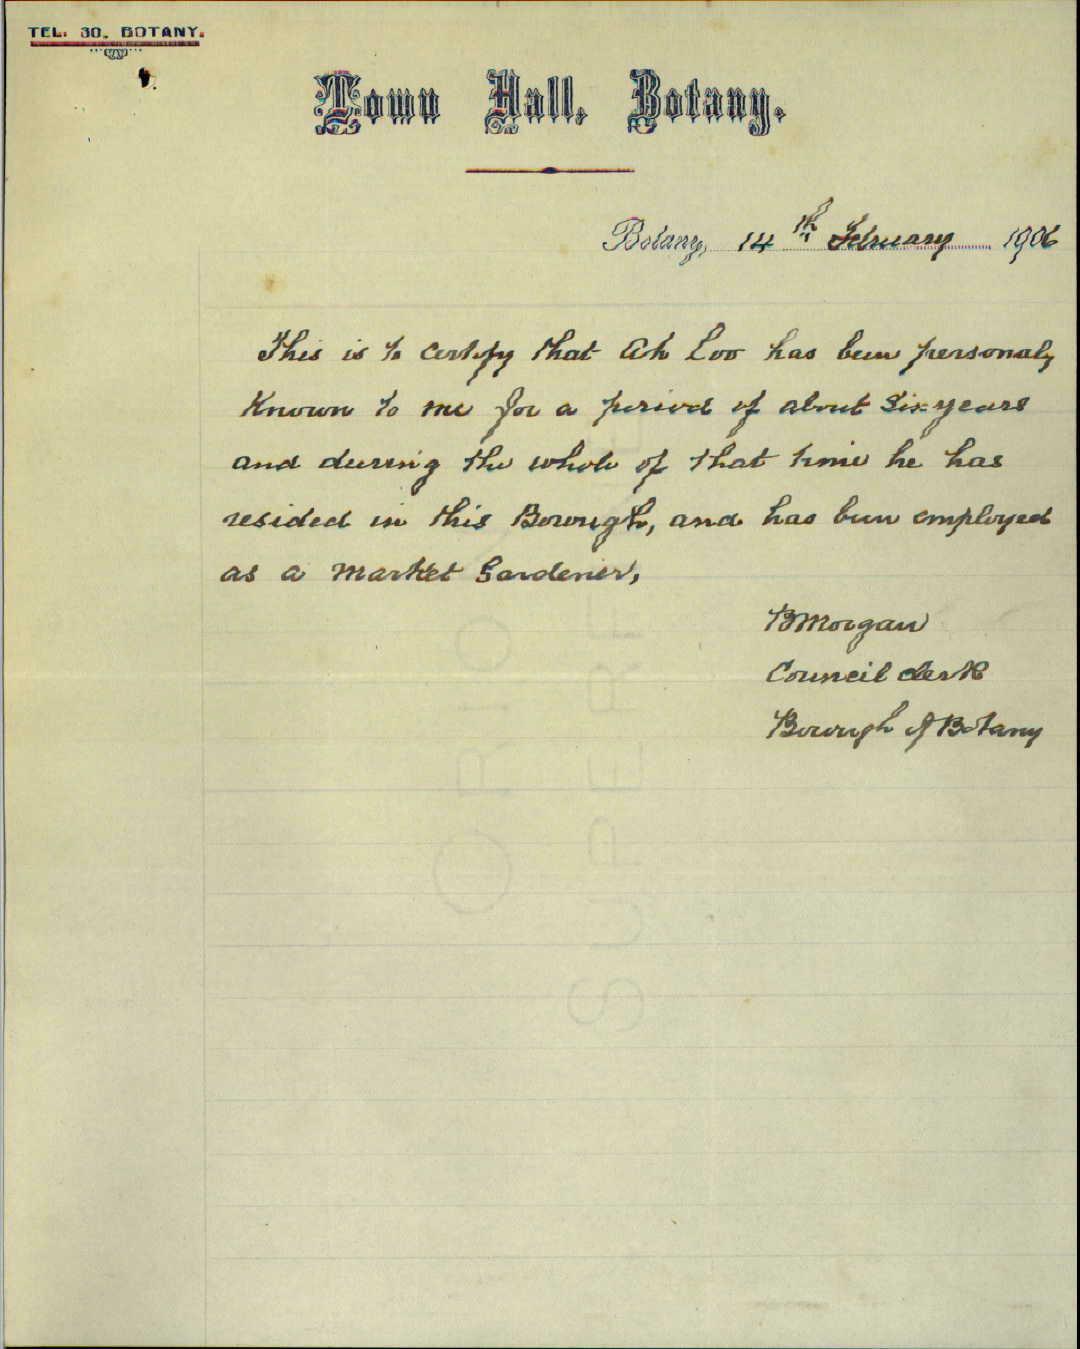 TEL. 30. BOTANY.
Town Hall, Botany.
Botany, 14th February 1906
This is to certify that Ah Loo has been personaly
Known to me for a period of about Six years
and during the whole of that time he has
resided in this Borough, and has been employed
as a Market Gardener,
BMorgan
Council clerk
Borough of Botany